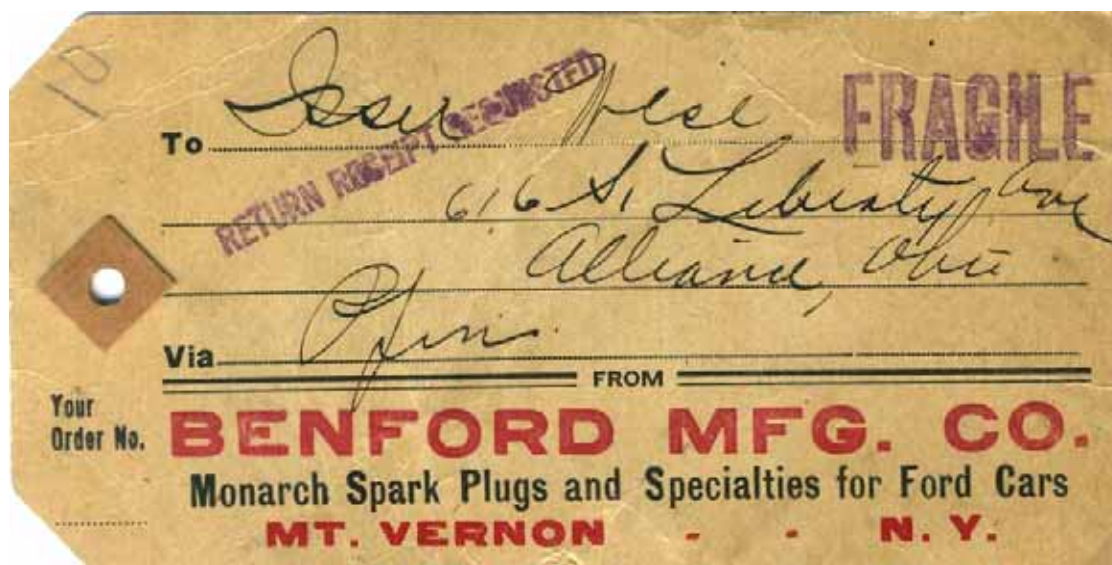 10
To
RETURN RECEIPT REQUESTED
FRAGILE
616 S. Liberty Ave
Alliance, Ohio
Via
FROM
Your
Order No.
BENFORD MFG. CO.
Monarch Spark Plugs and Specialties for Ford Cars
MT. VERNON - - N. Y.